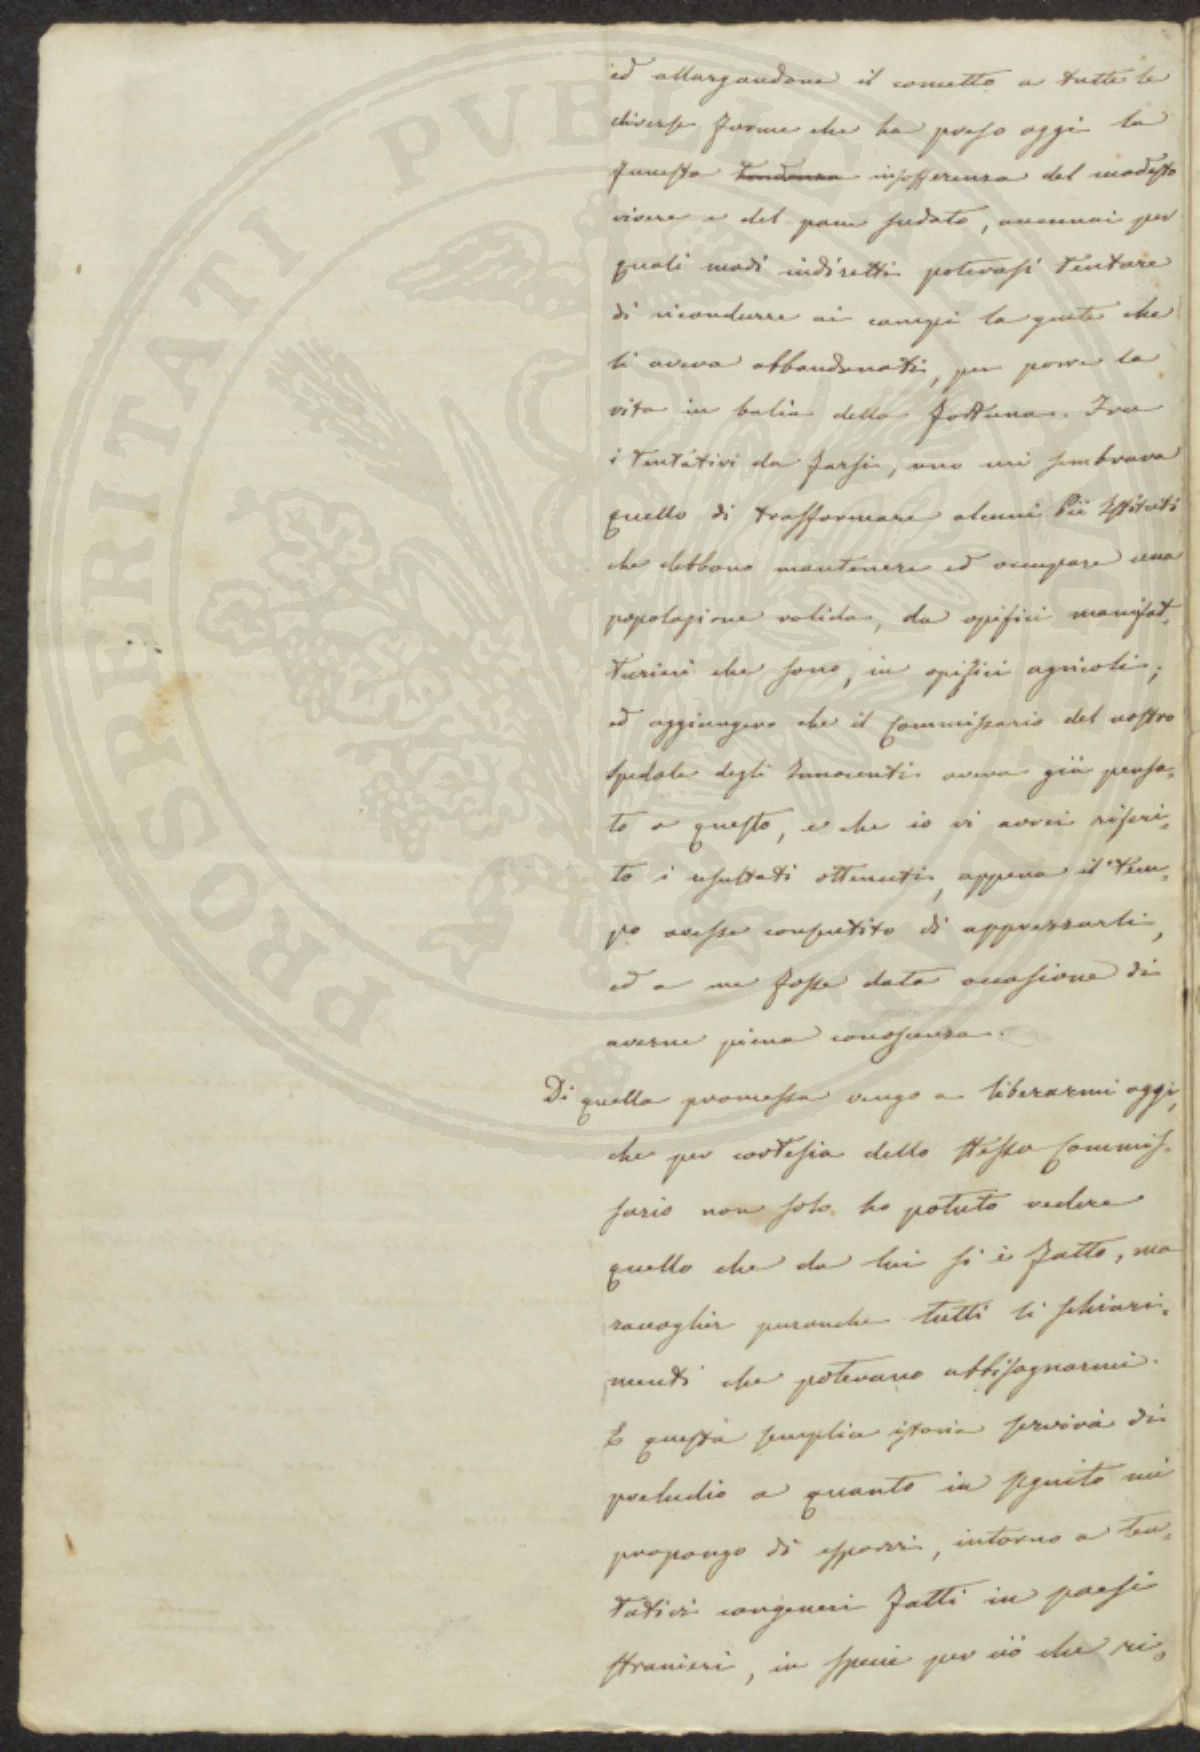 ed allargandone il concetto a tutte le
diverse forme che ha preso oggi la
funesta tendenza insofferenza del modesto
vivere e del pane sudato, accennai per
quali modi indiretti potevasi tentare
di ricondurre ai campi la gente che
li aveva abbandonati, per porre la
vita in balia della fortuna. Fra
i tentativi da farsi, uno mi sembrava
quello di trasformare alcuni Pii Istituti
che debbono mantenere ed occupare una
popolazione valida, da opifici manifat-
turieri che sono, in opifici agricoli;
ed aggiungevo che il Commissario del nostro
Spedale degli Innocenti aveva già pensa-
to a questo, e che io vi avrei riferi-
to i resultati ottenuti, appena il tem-
po avesse consentito di apprezzarli,
ed a me fosse data occasione di
averne piena conoscenza.
Di quella promessa vengo a liberarmi oggi,
che per cortesia dello stesso Commis-
sario non solo ho potuto vedere
quello che da lui si è fatto, ma
raccoglier puranche tutti li schiari-
menti che potevano abbisognarmi.
E questa semplice istoria servirà di
preludio a quanto in seguito mi
propongo di esporvi, intorno a ten-
tativi congeneri fatti in paesi
stranieri, in specie per ciò che ri-
PROSPERITATI PVBLICAE